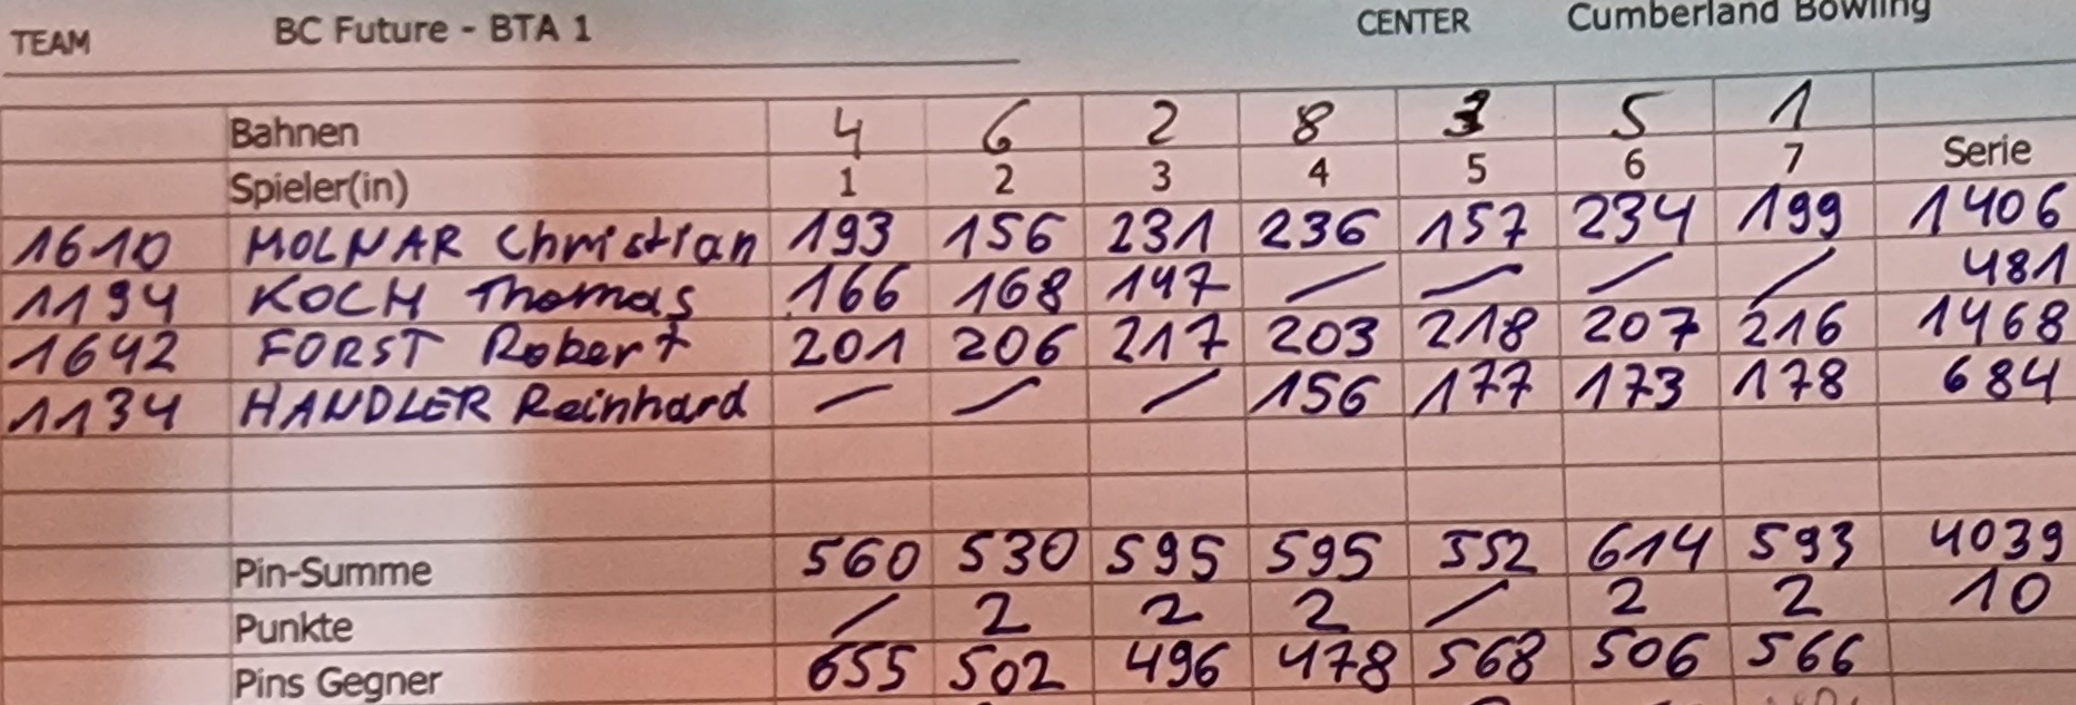 TEAM BC Future - BTA 1 CENTER Cumberland Bowling
Bahnen 4 6 2 8 3 5 1
Spieler(in) 1 2 3 4 5 6 7 Serie
1610 MOLNAR Christian 193 156 231 236 157 234 199 1406
1194 KOCH Thomas 166 168 147 / / / / 481
1642 FORST Robert 201 206 217 203 218 207 216 1468
1134 HANDLER Reinhard / / / 156 177 173 178 684
Pin-Summe 560 530 595 595 552 614 593 4039
Punkte / 2 2 2 / 2 2 10
Pins Gegner 655 502 496 478 568 506 566